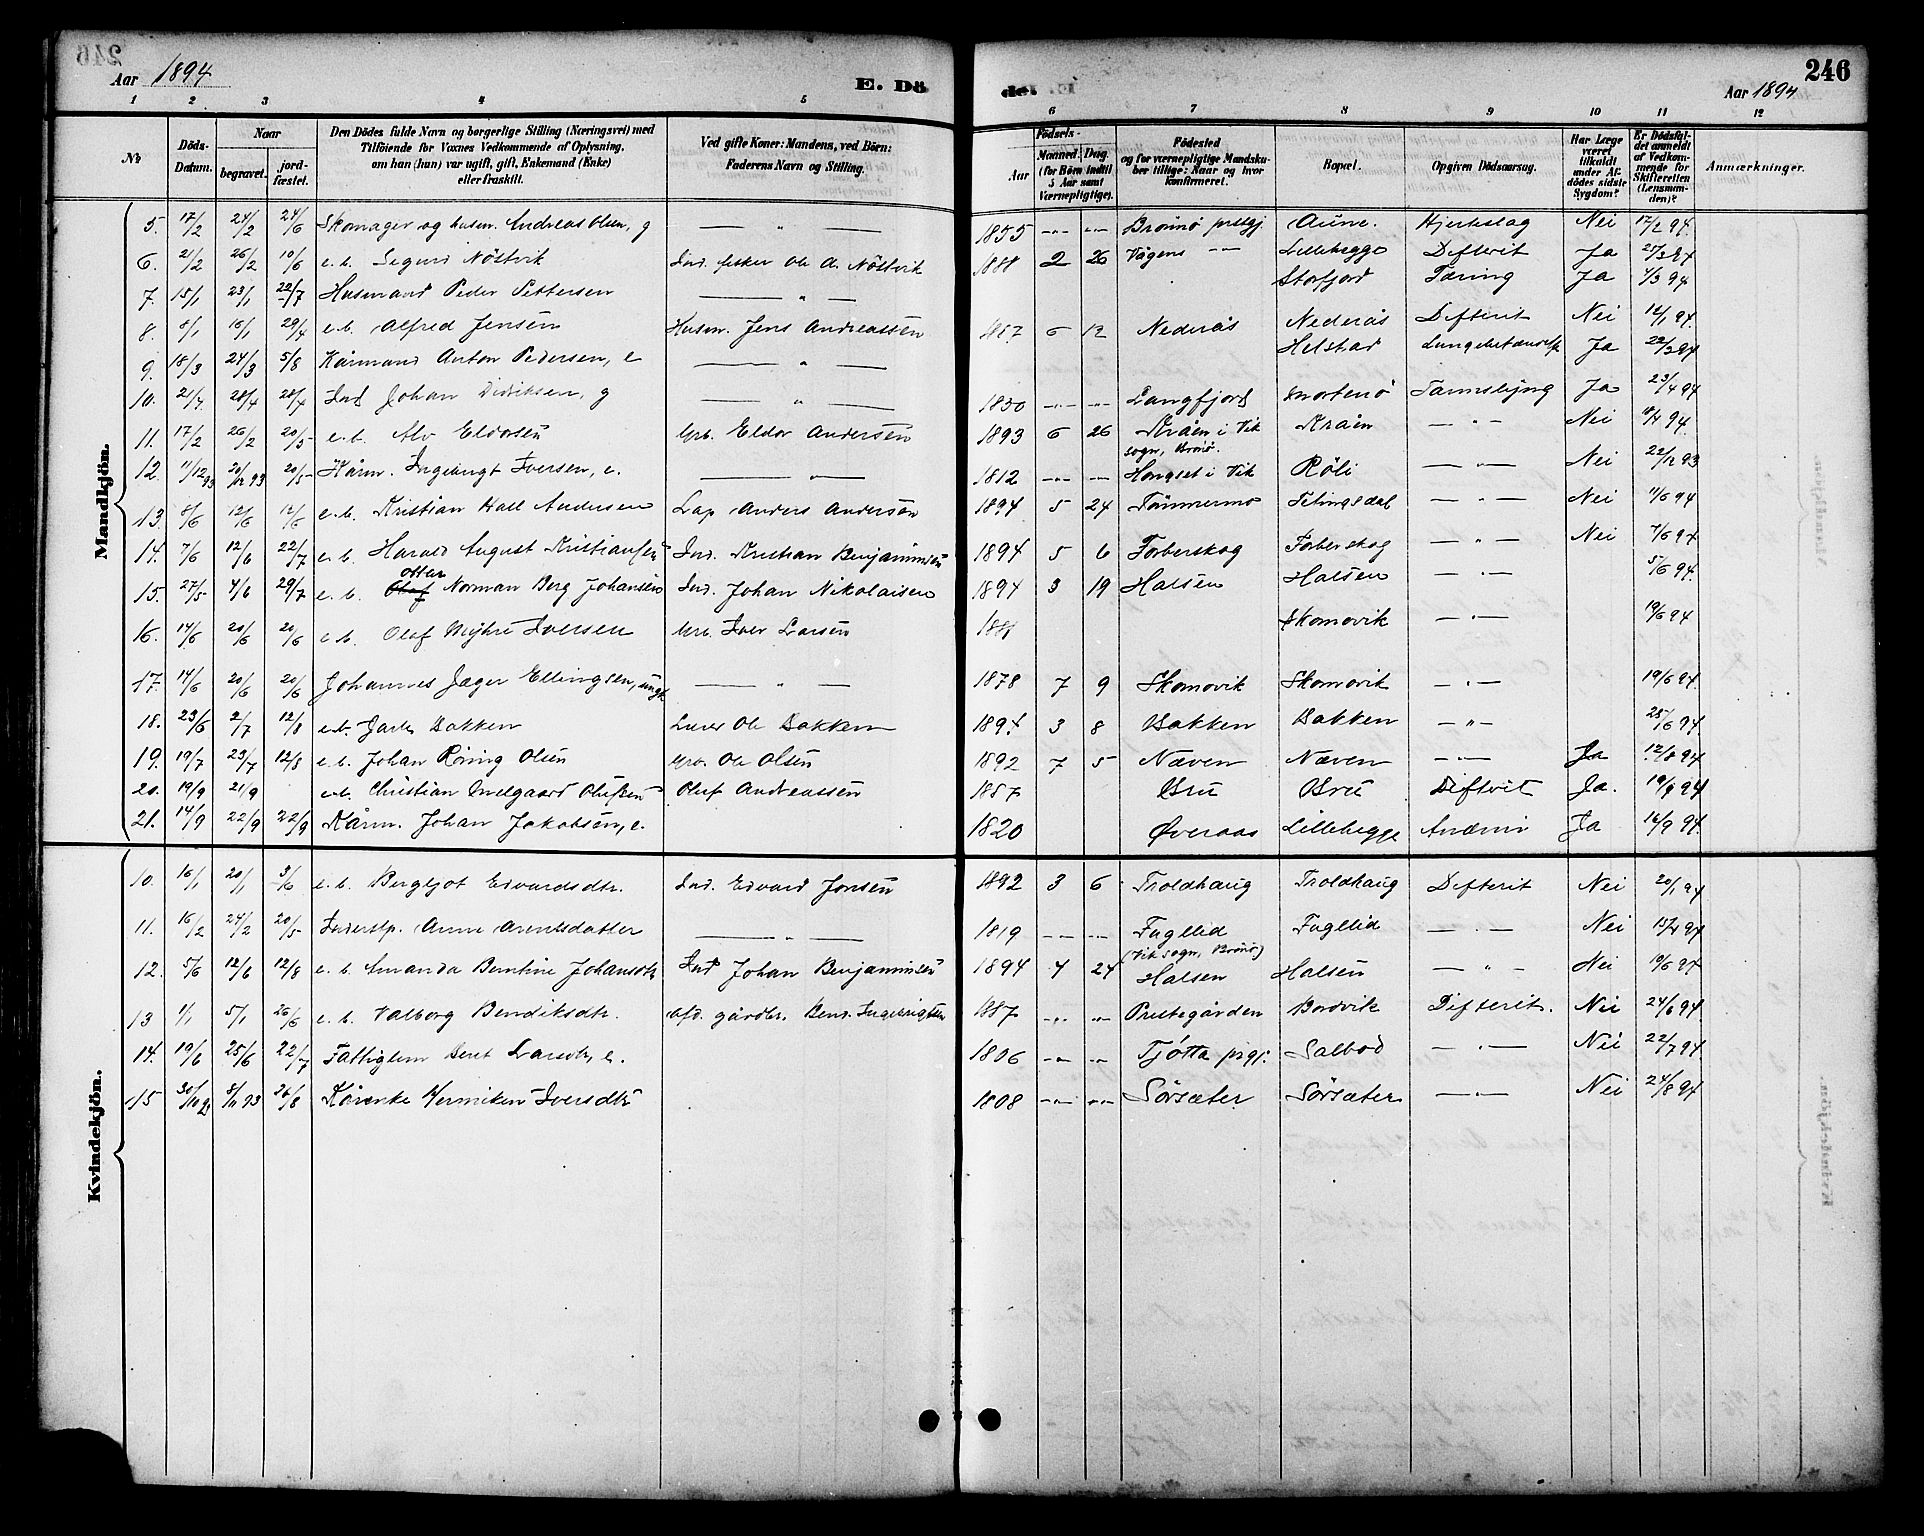 246
Aar 1894 E. Dö de. Aar 1894
1 2 3 4 5 6 7 8 9 10 11 12
No Döds-Datum. Naar begravet. jordfæstet. Den Dödes fulde Navn og borgerlige Stilling (Næringsvei) med Tilföiende for Voxnes Vedkommende af Oplysning, om han (hun) var ugift, gift, Enkemand (Enke) eller fraskilt. Ved gifte Koner: Mandens, ved Börn: Faderens Navn og Stilling. Födsels- Aar Maaned. Dag. (for Börn indtil 5 Aar samt Værnepligtige). Födested og for værnepligtige Mandskuber tillige: Naar og hvor konfirmeret. Bopæl. Opgiven Dödsaarsag. Har Læge været tilkaldt under Afdödes sidste Sygdom? Er Dödsfaldet anmeldt af Vedkommende for Skifteretten (Lensmanden)? Anmærkninger.
Mandkjön.
5. 17/2 24/2 24/6 Skomager og husm. Andreas Olsen, g — " — 1855 -"- -"- Brönnö prestgj. Aune. Hjerteslag Nei 17/2 94.
6. 21/2 26/2 10/6 e.b. Sigurd Nöstvik Ind. fisker Ole A. Nöstvik 1888 2 26 Vågens -"- Lillebegge Difterit Ja 27/3 94
7. 15/1 23/1 22/7 Husmand Peder Pettersen — " — Storfjord Tæring Ja 1/3 94
8. 8/1 16/1 29/4 e.b. Alfred Jensen Husm. Jens Andreassen 1887 6 12 Nederås Nederås Difterit Nei 12/1 94.
9. 18/3 24/3 5/8 Kårmand Anton Pedersen, e — " — Helstad Ja 22/3 94
10. 21/4 28/4 28/4 Ind Johan Didriksen, g — " — 1850 -"- -"- Langfjord Mortenö Tarmslyng Ja 23/4 94
11. 17/2 26/2 20/5 e.b. Alv Eldorsen Grb. Eldor Andersen 1893 6 26 Kråen i Vik sogn, Brönö. Kråen — " — Nei 18/4 94.
12. 11/12 93 20/12 93 20/5 Kårm. Ingebrigt Iversen, e. — " — 1812 -"- -"- Hongset i Vik Röli — " — Nei 22/12 93
13. 8/6 12/6 12/6 e.b. Kristian Hall Andersen Lap Anders Andersen 1894 5 24 Tömmermo Tetingsdal — " — Nei 11/6 94
14. 7/6 12/6 22/7 e.b. Harald August Kristiansen Ind. Kristian Benjaminsen 1894 5 6 Forberskog Forberskog — " — Nei 7/6 94
15. 27/5 4/6 29/7 e.b. Otter Norman Berg Johansen Ind. Johan Nikolaisen 1894 3 19 Halsen Halsen — " — 5/6 94.
16. 14/6 20/6 20/6 e.b. Olaf Myhre Iversen Grb. Iver Larsen 188 Skomovik — " — 19/6 94
17. 14/6 20/6 20/6 Johannes Jæger Ellingsen, ungk — " — 1878 7 9 Skomovik Skomovik — " — 19/6 94.
18. 23/6 2/7 12/8 e.b. Jarle Bakken Lærer Ole Bakken 1894 3 8 Bakken Bakken — " — 25/6 94
19. 19/7 23/7 12/8 e.b. Johan Röning Olsen Grb. Ole Olsen 1892 7 5 Næven Næven — " — Ja 12/8 94
20. 19/9 21/9 e.b. Christian Melgaard Olufsen Oluf Andreassen 1887 Bru Bru Diftrit Ja. 19/9 94
21. 14/9 22/9 22/9 Kårm. Johan Jakobsen, e. 1820 Øveraas Lillebegge Anæmi Ja 16/9 94.
Kvindekjön.
10. 16/1 20/1 3/6 e.b. Bergljot Edvardsdtr. Ind. Edvard Jensen 1892 3 6 Troldhaug Troldhaug Difterit Nei 20/1 94
11. 16/2 24/2 20/5 Inderstp. Anne Arentsdatter — " — 1819 -"- -"- Fugllid (Vik sogn, Brönö) Fuglid — " — Nei 15/4 94
12. 5/6 12/6 12/8 e.b. Amanda Berntine Johansdtr Ind Johan Benjaminsen 1894 4 24 Halsen Halsen — " — Nei 10/6 94
13 1/1 5/1 26/6 e.b. Valborg Bendiksdtr. afd. gårdbr. Bend. Ingebrigtsen 1887 -"- -"- Prestegården Bordvik Difterit. Nei 24/6 94.
14. 19/6 25/6 22/7 Fattiglem Beret Larsdtr, e. 1806 -"- -"- Tjötta prgj. Salbod — " — Nei 22/7 94
15 30/10 93 8/11 93 26/8 Kårenke Henriken Iversdtr 1808 -"- -"- Sörsæter Sörsæter — " — Nei 24/8 94